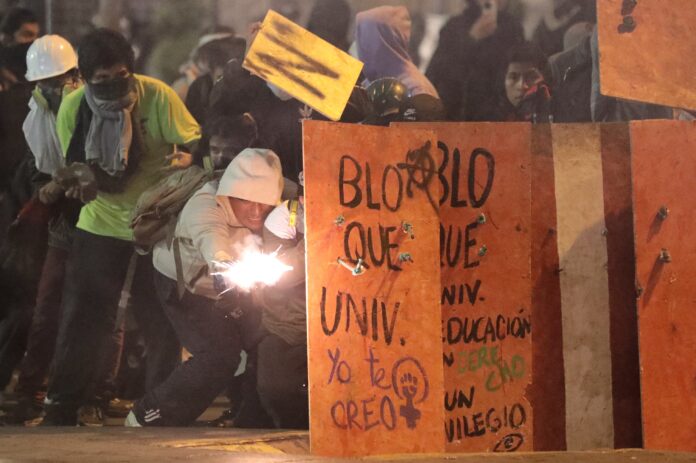 BLO
QUE
UNIV.
Yo te
CREO
BLO
QUE
NIV.
EDUCACIÓN
UN DERE
CHO
UN
VILEGIO